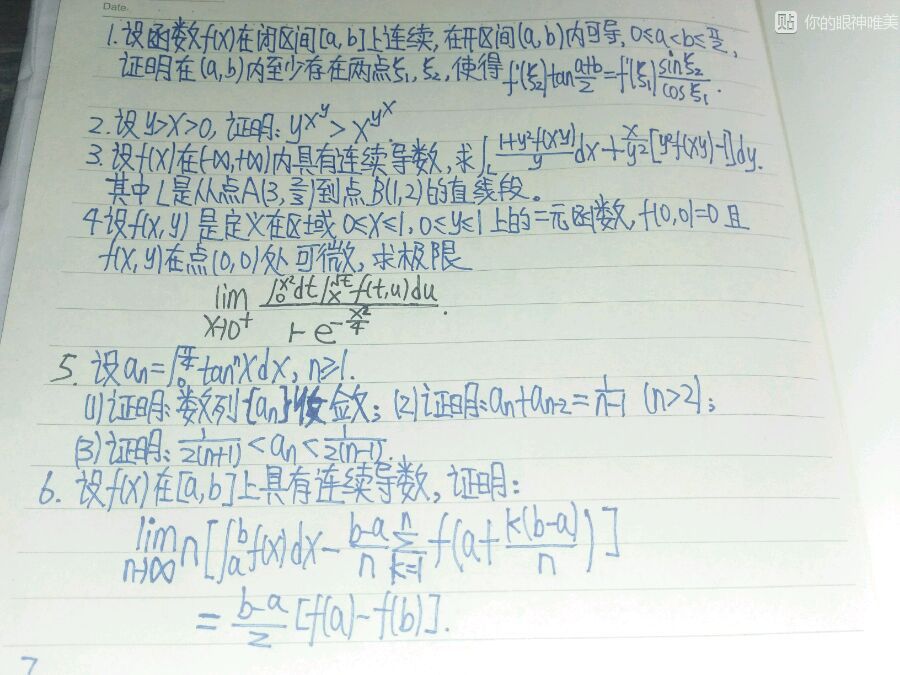 Date.
贴 你的眼神唯美
1. 设函数f(x)在闭区间[a,b]上连续,在开区间(a,b)内可导,0≤a<b≤π/2,
证明在(a,b)内至少存在两点ξ₁,ξ₂,使得f'(ξ₂)tan (a+b)/2=f'(ξ₁) sinξ₂/cosξ₁.
2. 设y>x>0,证明:y^{x^y}>x^{y^x}
3. 设f(x)在(-∞,+∞)内具有连续导数,求∫_L (1+y²f(xy))/y dx+x/y²[y²f(xy)-1]dy.
其中L是从点A(3,2/3)到点B(1,2)的直线段。
4 设f(x,y)是定义在区域0≤x≤1,0≤y≤1上的二元函数,f(0,0)=0且
f(x,y)在点(0,0)处可微,求极限
lim_{x→0⁺} ∫_0^{x²}dt∫_x^{√t}f(t,u)du / (1-e^{-x²/4}).
5. 设an=∫_0^{π/4}tanⁿxdx,n≥1.
(1)证明:数列{an}收敛;(2)证明:an+an-2=1/(n-1) (n>2);
(3)证明:1/(2(n+1))<an<1/(2(n-1)).
6. 设f(x)在[a,b]上具有连续导数,证明:
lim_{n→∞} n[∫_a^b f(x)dx-(b-a)/n Σ_{k=1}^n f(a+k(b-a)/n)]
=(b-a)/2[f(a)-f(b)].
7